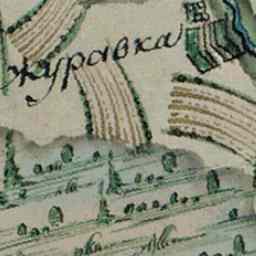 журавка